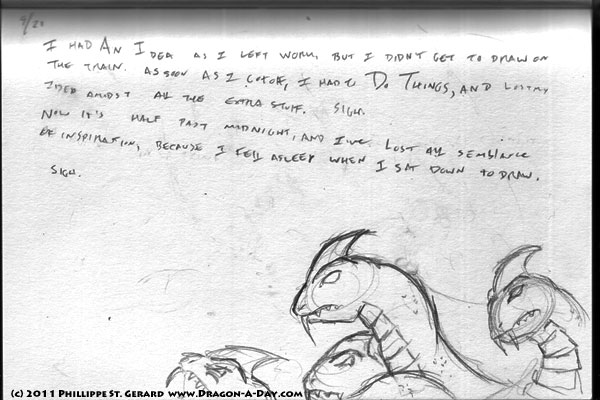 9/20
I HAD AN IDEA AS I LEFT WORK, BUT I DIDN'T GET TO DRAW ON
THE TRAIN. AS SOON AS I GOT OFF, I HAD TO DO THINGS, AND LOST MY
IDEA AMIDST ALL THE EXTRA STUFF. SIGH.
NOW IT'S HALF PAST MIDNIGHT, AND I'VE LOST ALL SEMBLANCE
OF INSPIRATION, BECAUSE I FELL ASLEEP WHEN I SAT DOWN TO DRAW.
SIGH.
(c) 2011 PHILLIPPE ST. GERARD WWW.DRAGON-A-DAY.COM